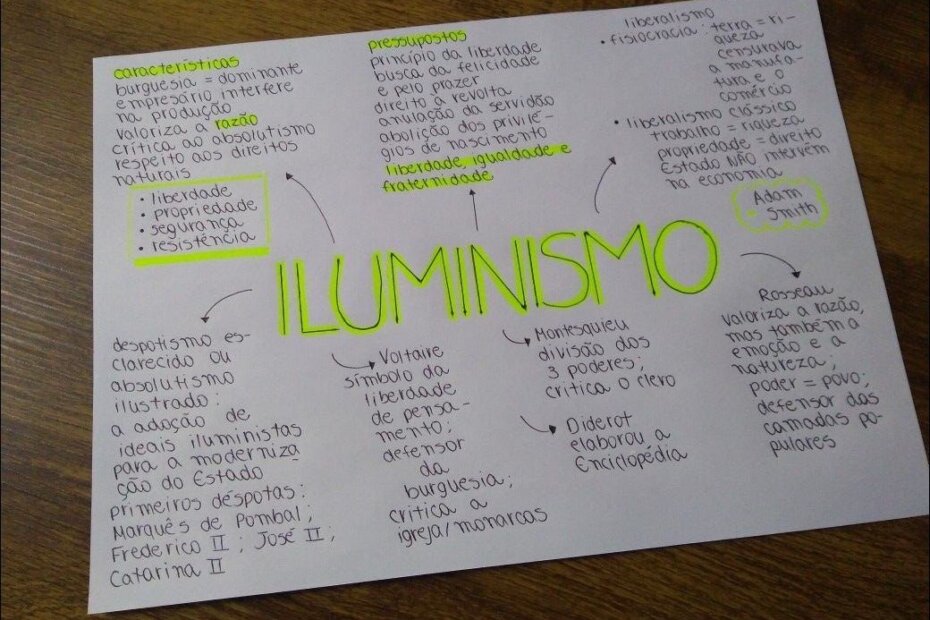 características
burguesia = dominante
empresário interfere
na produção
valoriza a razão
crítica ao absolutismo
respeito aos direitos
naturais
• liberdade
• propriedade
• segurança
• resistência
pressupostos
princípio da liberdade
busca da felicidade
e pelo prazer
direito à revolta
anulação da servidão
abolição dos privilé-
gios de nascimento
liberdade, igualdade e
fraternidade
liberalismo
• fisiocracia: terra = ri-
queza
censurava
a manufa-
tura e o
comércio
• liberalismo clássico
trabalho = riqueza
propriedade = direito
Estado NÃO intervém
na economia
Adam
Smith
ILUMINISMO
despotismo es-
clarecido ou
absolutismo
ilustrado:
a adoção de
ideais iluministas
para a moderniza
ção do Estado
primeiros déspotas:
Marquês de Pombal;
Frederico II; José II;
Catarina II
Voltaire
símbolo da
liberdade
de pensa-
mento;
defensor
da
burguesia;
critica a
igreja/monarcas
Montesquieu
divisão dos
3 poderes;
critica o clero
Diderot
elaborou a
Enciclopédia
Rosseau
valoriza a razão,
mas também a
emoção e a
natureza;
poder = povo;
defensor das
camadas po-
pulares